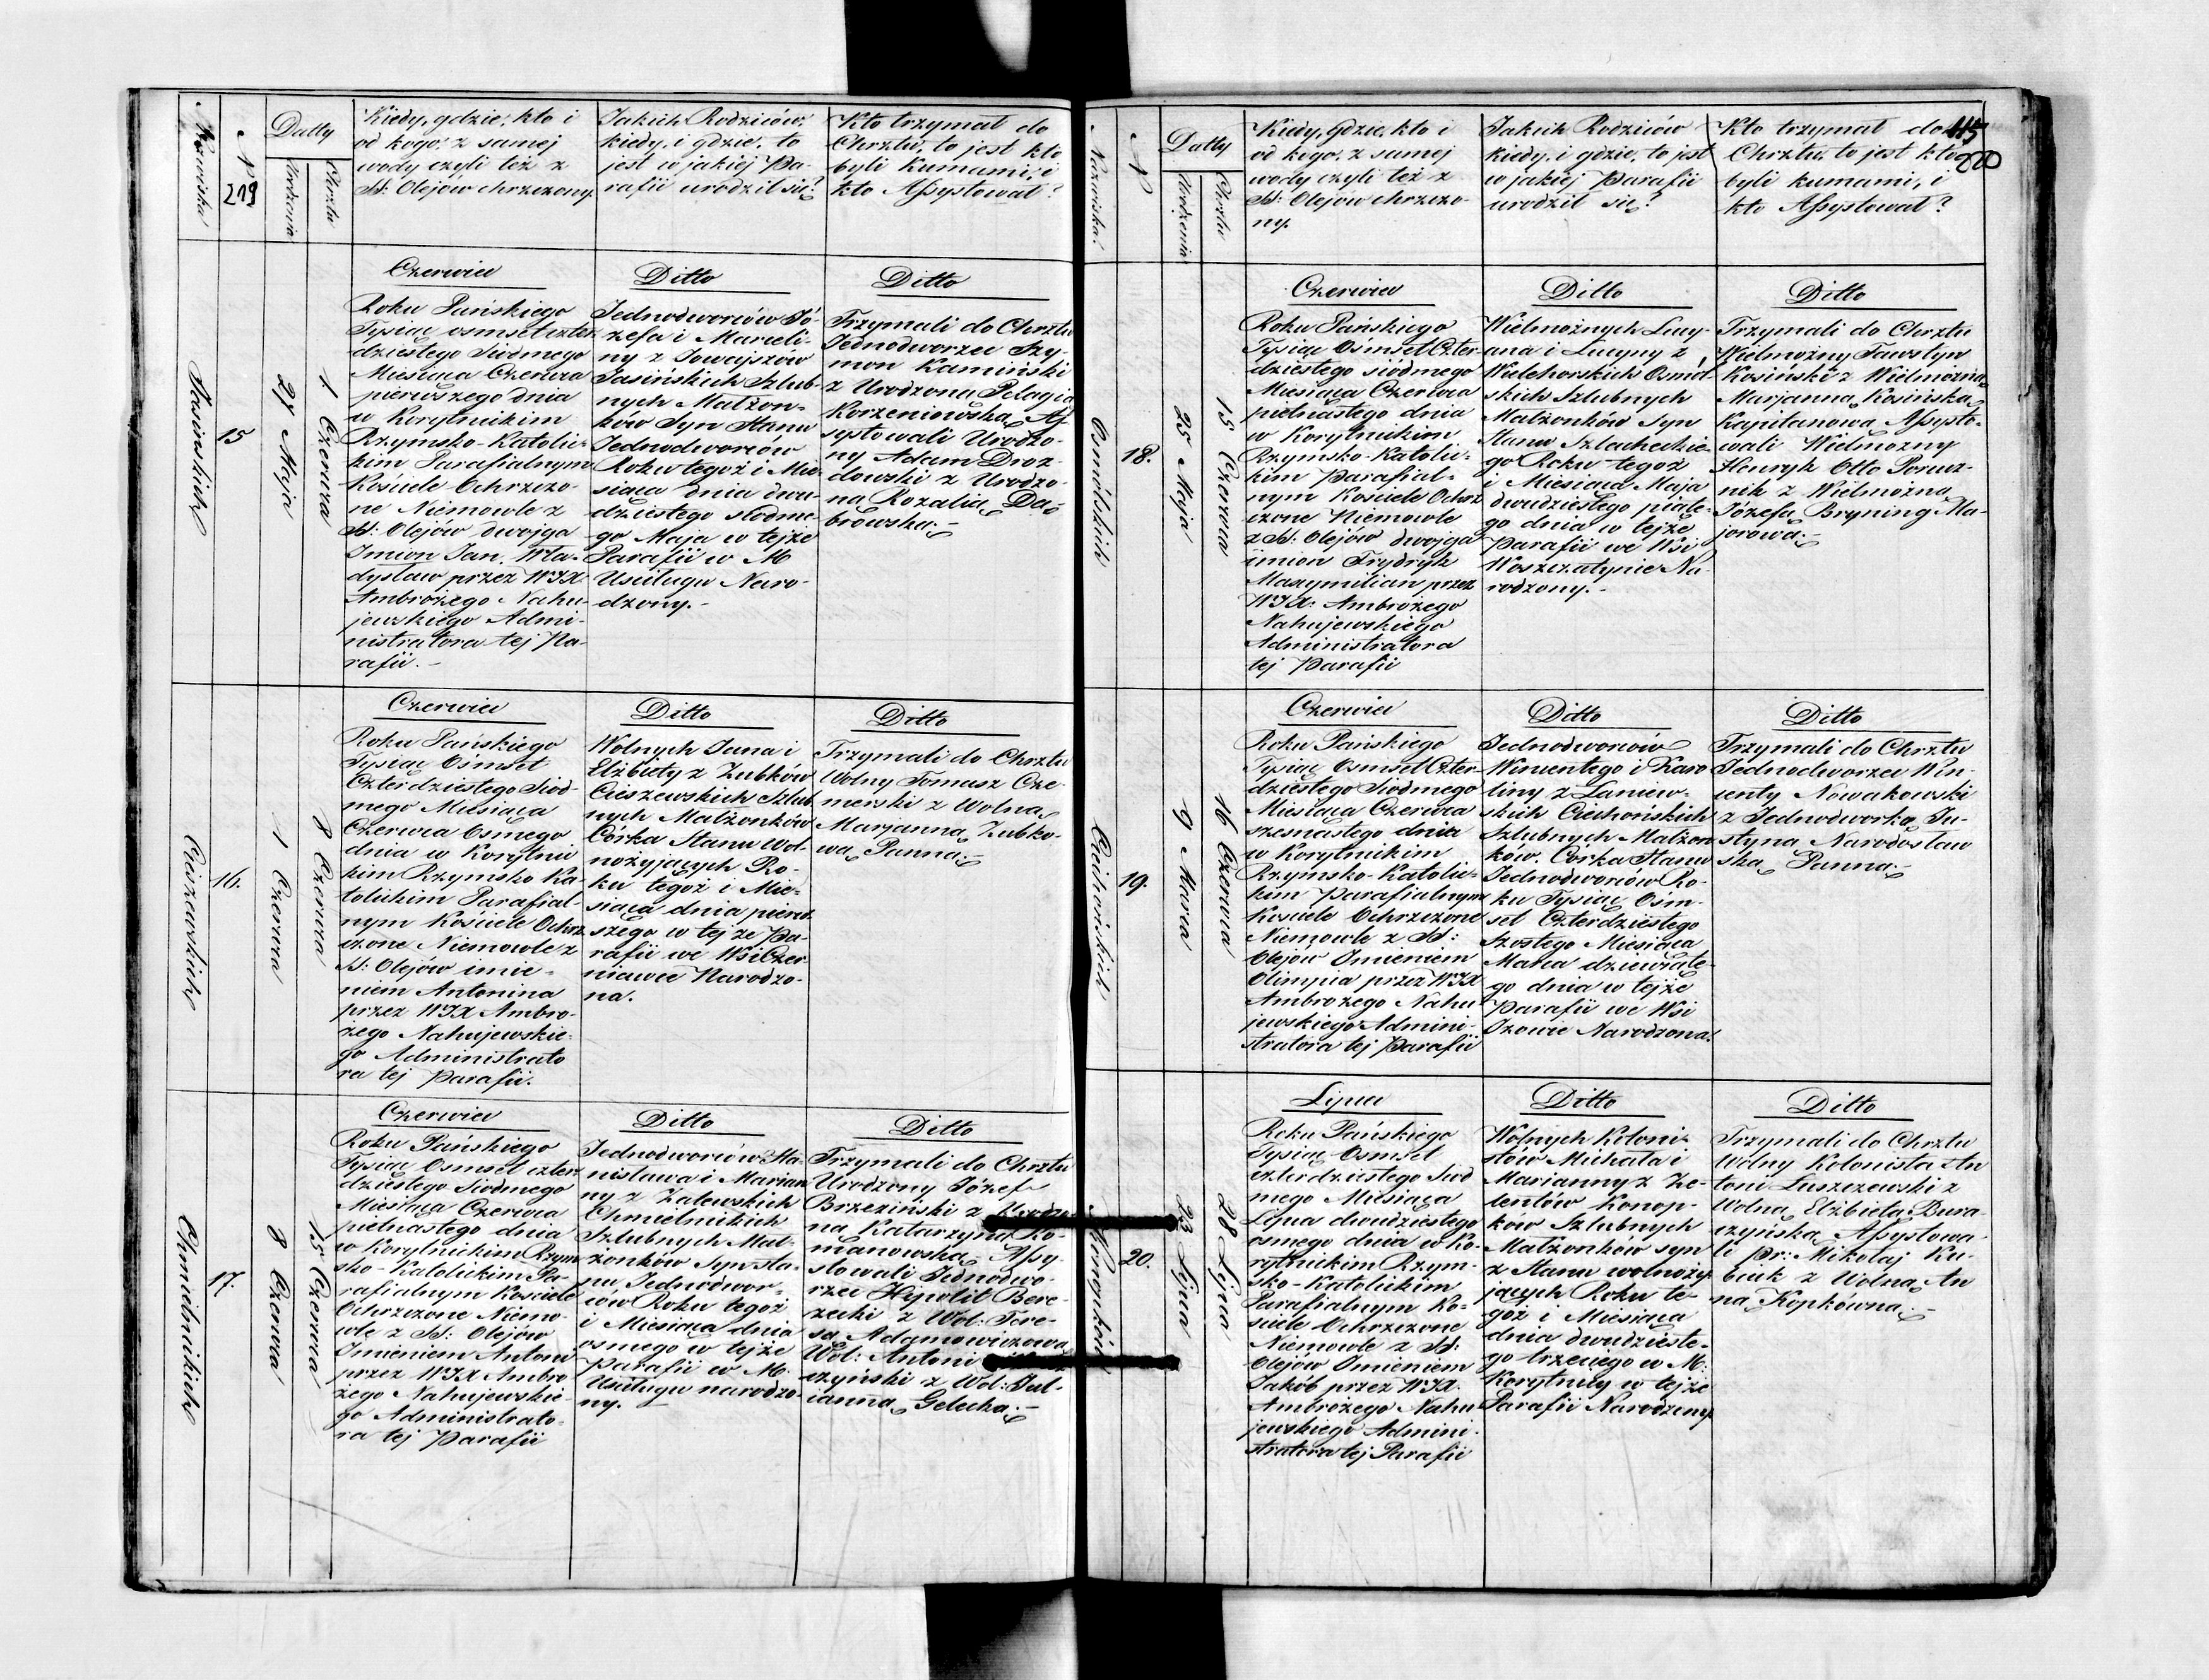 Nazwiska
N
219
Datty
Urodzenia
Chrztu
Kiedy, gdzie, kto i
od kogo, z samej
wody czyli też z
SS: Olejów chrzczony.
Jakich Rodziców,
kiedy, i gdzie, to
jest w jakiej Pa-
rafii urodził się?
Kto trzymał do
Chrztu, to jest kto
byli Kumami, i
kto Assystował?
Jasińskich
15
27 Maja
1 Czerwca
Czerwiec
Roku Pańskiego
Tysiąc osmset czter
dziestego Siodmego
Miesiąca Czerwca
pierwszego dnia
w Korytnickim
Rzymsko-Katolic-
kim Parafialnym
Kościele Ochrzczo-
ne Niemowle z
SS: Olejów dwojga
Imion Jan, Wła-
dysław przez WJX
Ambrożego Nahu-
jewskiego Admi-
nistratora tej Pa-
rafii.-
Ditto
Jednodworców Jó-
zefa i Marceli-
ny z
Jasińskich Szlub-
nych Małżon-
ków Syn Stanu
Jednodworców
Roku tegoż i Mie-
siąca dnia dwu-
dziestego siodme-
go Maja w tejże
Parafii w M
Uściługu Naro-
dzony.-
Ditto
Trzymali do Chrztu
Jednodworzec Szy-
mon Kamiński
z Urodzoną Pelagią
Korzeniowską As
systowali Urodzo-
ny Adam Droz-
dowski z Urodzo-
ną Rozalią Dą-
browską.-
Cieszewskich
16.
1 Czerwca
8 Czerwca
Czerwiec
Roku Pańskiego
Tysiąc Ośmset
Czterdziestego Siod-
mego Miesiąca
Czerwca Osmego
dnia w Korytnic
kim Rzymsko Ka-
tolickim Parafial-
nym Kościele Ochrz
czone Niemowle z
SS: Olejów imie-
niem Antonina
przez WJX Ambro-
żego Nahujewskie-
go Administrato
ra tej Parafii.
Ditto
Wolnych Jana i
Elżbiety z Zubków
Cieszewskich Szlub
nych Małżonków
Córka Stanu Wol-
nożyjących Ro-
ku tegoż i Mie-
siąca dnia pierw
szego w tej że Pa-
rafii we Wsi Czer
niawce Narodzo-
na.
Ditto
Trzymali do Chrztu
Wolny Tomasz Cze-
merski z Wolną
Marjanną Zubko-
wą Panną.-
Chmielnickich
17.
8 Czerwca
15 Czerwca
Czerwiec
Roku Pańskiego
Tysiąc Osmset czter
dziestego Siodmego
Miesiąca Czerwca
pietnastego dnia
w Korytnickim Rzym
sko-Katolickim Pa-
rafialnym Kościele
Ochrzczone Niemo-
wlę z SS: Olejów
Imieniem Antoni
przez WJX Ambro
żego Nahujewskie-
go Administrato-
ra tej Parafii
Ditto
Jednodworców Sta-
nisława i Marian
ny z Zalewskich
Chmielnickich
Szlubnych Mał-
żonków Syn sta-
nu Jednodwor-
ców Roku tegoż
i Miesiąca dnia
osmego w tejże
Parafii w M.
Uściługu narodzo-
ny.
Ditto
Trzymali do Chrztu
Urodzony Józef
Brzeziński z
ną Katarzyną Ro-
manowską, Assy-
stowali Jednodwo-
rzec Hipolit Bere-
zecki z Wol: Tere-
są Adamowiczową
Wol: Antoni
czyński z Wol: Jul-
ianną Gelecką.-
Nazwiska.
N
Datty
Urodzenia
Chrztu
Kiedy, gdzie, kto i
od kogo, z samej
wody czyli też z
SS: Olejów chrzczo-
ny.
Jakich Rodziców
kiedy, i gdzie, to jest
w jakiej Parafii
urodził się?
Kto trzymał do
Chrztu, to jest kto
byli kumami, i
kto Assystował?
115
220
Osmólskich
18.
25 Maja
15 Czerwca
Czerwiec
Roku Pańskiego
Tysiąc Ośmset Czter-
dziestego siódmego
Miesiąca Czerwca
pietnastego dnia
w Korytnickim
Rzymsko-Katolic-
kim Parafial-
nym Kościele Ochrz
czone Niemowle
z SS: Olejów dwojga
imion Frydryk
Maxymilian przez
WJX: Ambrożego
Nahujewskiego
Administratora
tej Parafii
Ditto
Wielmożnych Lucy-
ana i Lucyny z
Wielhorskich Osmól-
skich Szlubnych
Małżonków Syn
Stanu Szlacheckie-
go Roku tegoż
i Miesiąca Maja
dwudziestego piąte-
go dnia w tejże
Parafii we Wsi
Woszczatynie Na-
rodzony.-
Ditto
Trzymali do Chrztu
Wielmożny Fawstyn
Kosiński z Wielmożną
Marjanną Kosińską
Kapitanową Assysto-
wali Wielmożny
Henryk Otto Porucz-
nik z Wielmożną
Józefą Bryning Ma-
jorową.-
Ciechońskich
19.
9 Marca
16 Czerwca
Czerwiec
Roku Pańskiego
Tysiąc Osmset Czter-
dziestego Siodmego
Miesiąca Czerwca
szesnastego dnia
w Korytnickim
Rzymsko-Katolic-
kim Parafialnym
Kosciele Ochrzczone
Niemowle z SS:
Olejów Imieniem
Olimpia przez WJX
Ambrożego Nahu
jewskiego Admini-
stratora tej Parafii
Ditto
Jednodworców
Wincentego i Karo
liny z Laniew-
skich Ciechońskich
Szlubnych Małżon
ków. Corka Stanu
Jednodworców Ro-
ku Tysiąc Ośm-
set Czterdziestego
Szostego Miesiąca
Marca dziewiąte-
go dnia w tejże
Parafii we Wsi
Izowie Narodzona.
Ditto
Trzymali do Chrztu
Jednodworzec Win-
centy Nowakowski
z Jednodworką Ju-
styną Narodosław
ską Panną.-
20.
23 Lipca
28 Lipca
Lipiec
Roku Pańskiego
Tysiąc Osmset
czterdziestego Siod
mego Miesiąca
Lipca dwudziestego
osmego dnia w Ko-
rytnickim Rzym-
sko-Katolickim
Parafialnym Ko-
sciele Ochrzczone
Niemowle z SS:
Olejów Imieniem
Jakób przez WJX.
Ambrożego Nahu
jewskiego Admini-
stratora tej Parafii
Ditto
Wolnych Koloni-
stów Michała i
Marianny z Ze-
lentów Konop-
ków Szlubnych
Małżonków syn
z Stanu wolnoży-
jących Roku te-
goż i Miesiąca
dnia dwudzieste-
go trzeciego w M:
Korytnicy w tejże
Parafii Narodzony
Ditto
Trzymali do Chrztu
Wolny Kolonista An
toni Łuszczewski z
Wolną Elżbietą Bura-
czyńską Assystowa-
li Pr: Mikołaj Ku-
biuk z Wolną An
ną Kopkówną.-